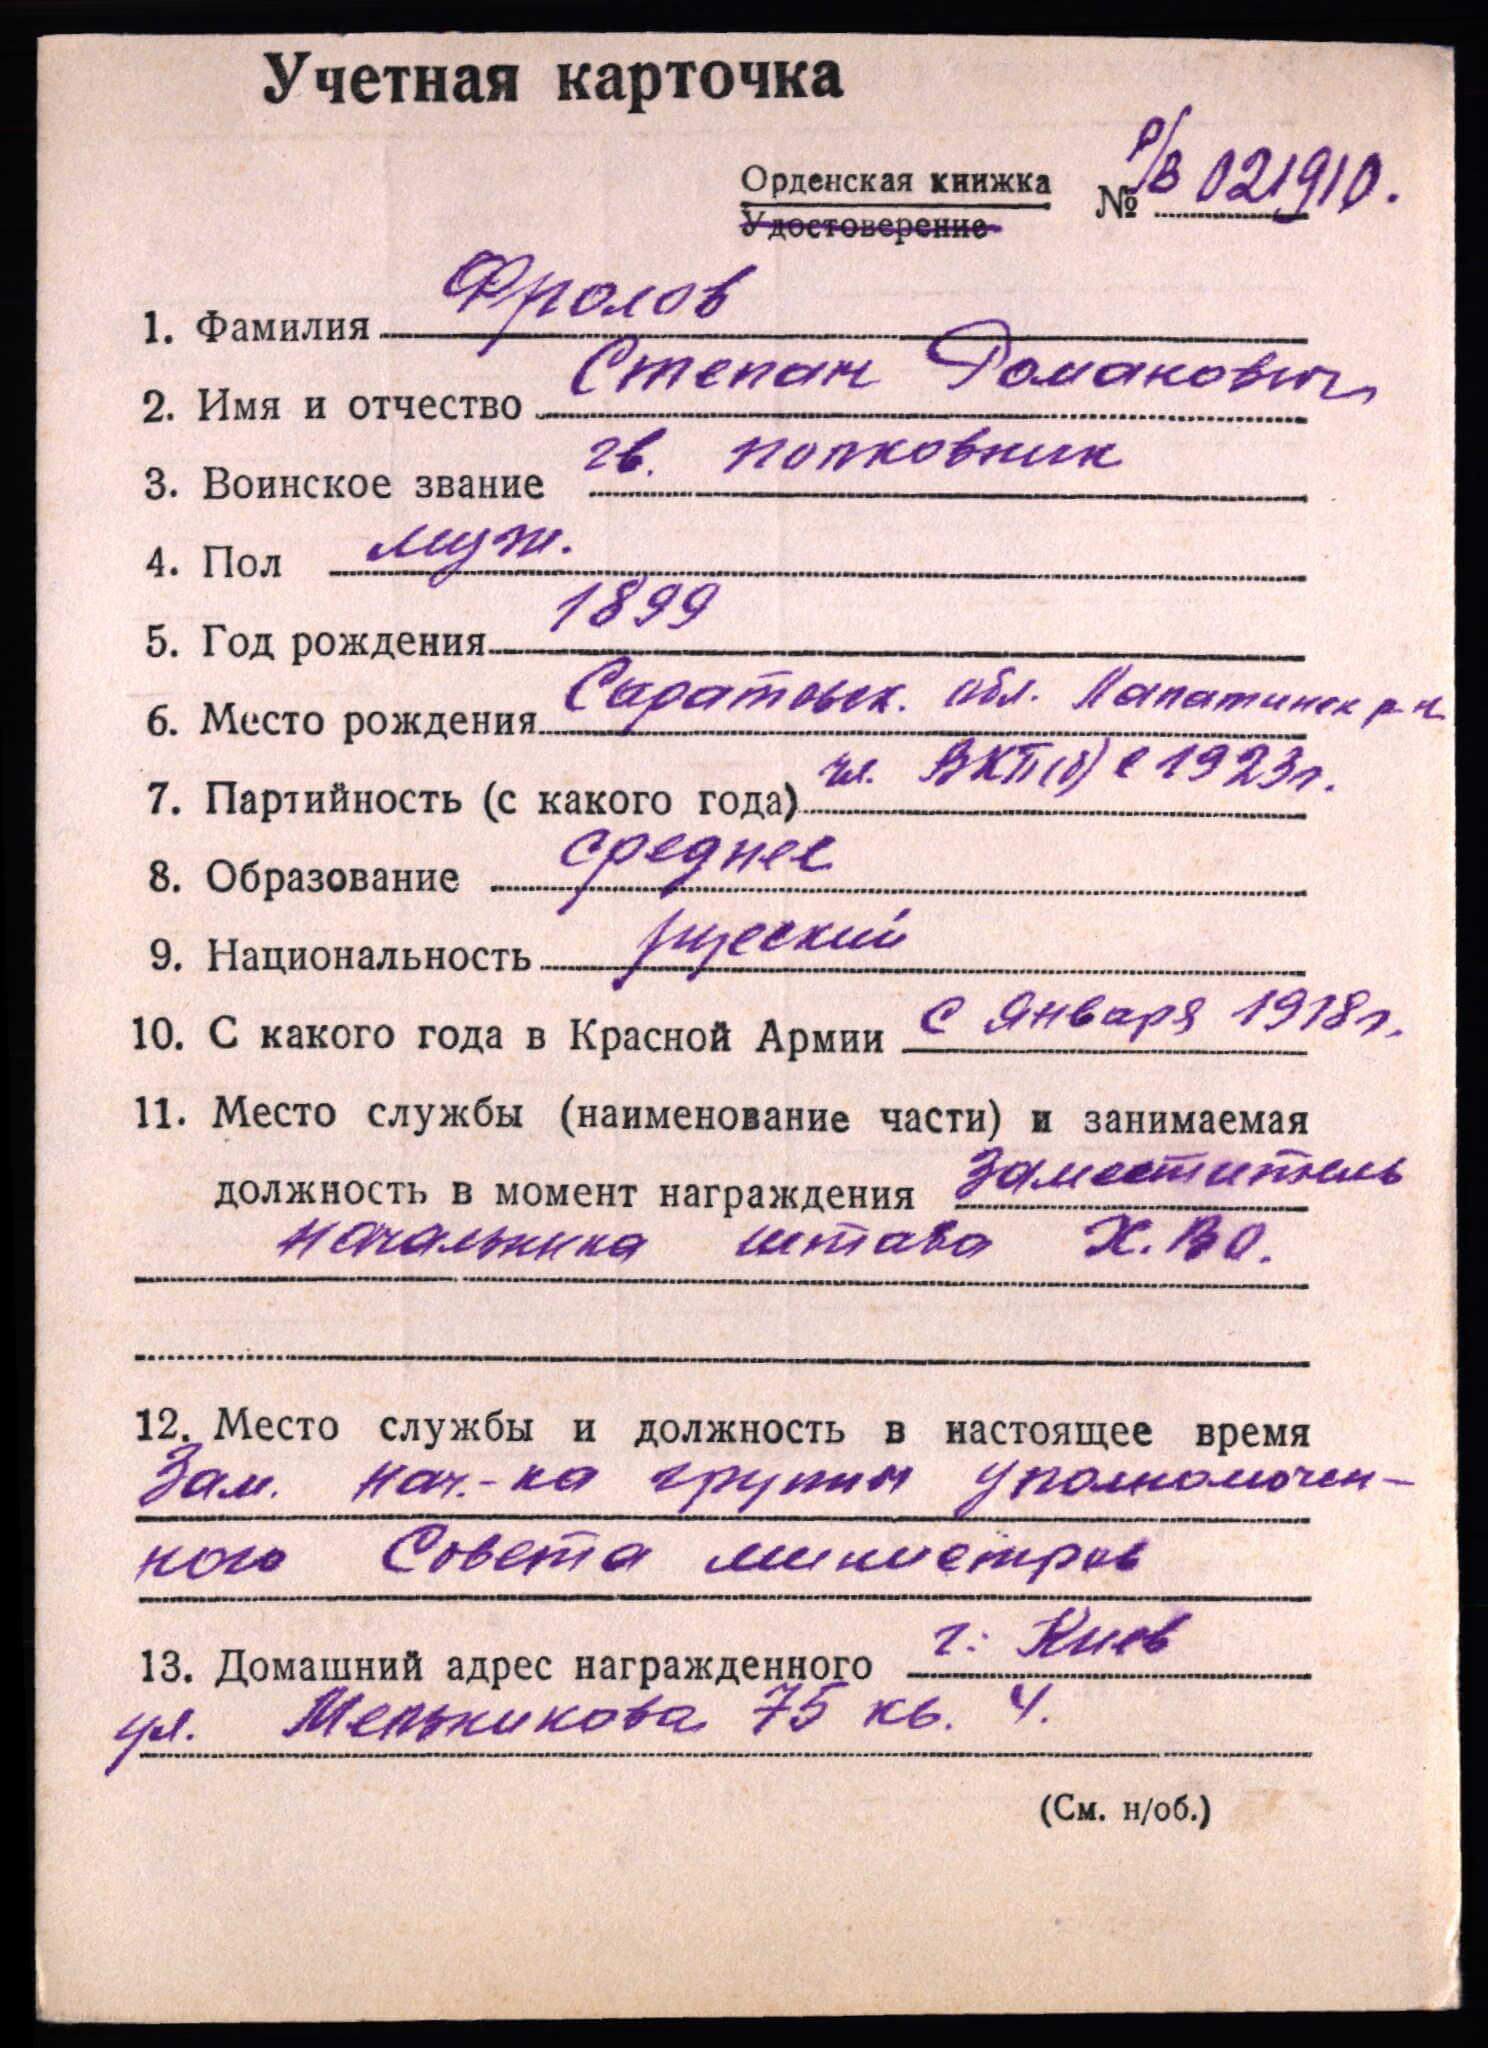 Учетная карточка
Орденская книжка № Р/В 021910.
Удостоверение
1. Фамилия Фролов
2. Имя и отчество Степан Романович
3. Воинское звание гв. полковник
4. Пол муж.
5. Год рождения 1899
6. Место рождения Саратовск. обл. Лапатинск р-н
7. Партийность (с какого года) чл. ВКП(б) с 1923г.
8. Образование среднее
9. Национальность русский
10. С какого года в Красной Армии с января 1918г.
11. Место службы (наименование части) и занимаемая
должность в момент награждения Заместитель
начальника штаба Х.ВО.
12. Место службы и должность в настоящее время
Зам. нач.-ка группы уполномочен-
ного Совета министров
13. Домашний адрес награжденного г. Киев
ул. Мельникова 75 кв. 4.
(См. н/об.)